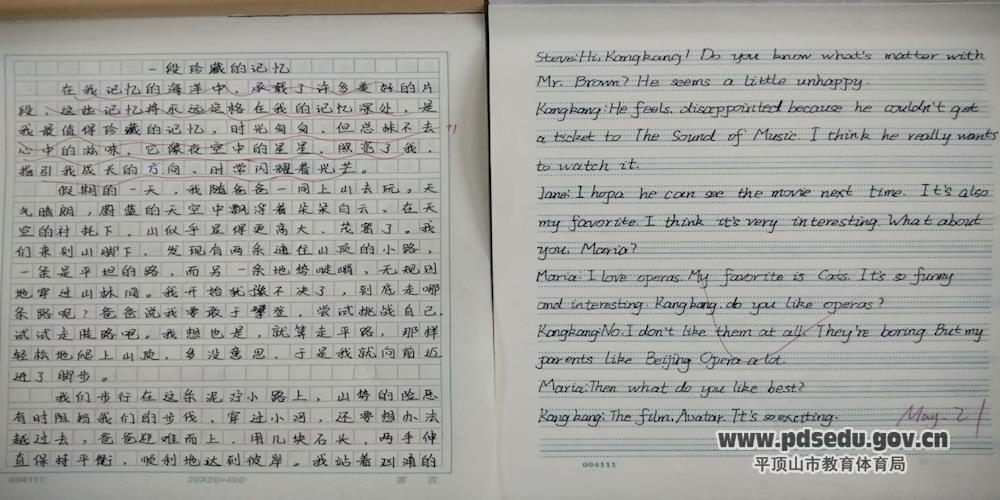 一段珍藏的记忆
在我记忆的海洋中，承载了许多美好的片
段，这些记忆将永远定格在我的记忆深处，是
我最值得珍藏的记忆，时光匆匆，但总抹不去
心中的滋味，它像夜空中的星星，照亮了我，
指引我成长的方向，时常闪耀着光芒。
假期的一天，我随爸爸一同上山去玩。天
气晴朗，蔚蓝的天空中飘浮着朵朵白云，在天
空的衬托下，山似乎显得更高大、茂密了。我
们来到山脚下，发现有两条通往山顶的小路，
一条是平坦的路，而另一条地势陡峭，无规则
地穿过山林间。我开始犹豫不决了，到底走哪
条路呢？爸爸说我要敢于攀登，尝试挑战自己，
试试走陡路吧。我想也是，就算走平路，那样
轻松地爬上山顶，多没意思、于是我就向前迈
进了脚步。
我们步行在这条泥泞小路上，山势的险恶
有时阻挡我们的步伐，穿过小河，还要想办法
越过去，爸爸迎难而上，用几块石头，两手伸
直保持平衡，顺利地达到彼岸。我站着汹涌的
004111
20X20=400
第 页
Steve:Hi, Kangkang! Do you know what's matter with
Mr. Brown? He seems a little unhappy.
Kangkang: He feels disappointed because he couldn't get
a ticket to The Sound of Music. I think he really wants
to watch it.
Jane: I hope he can see the movie next time. It's also
my favorite. I think it's very interesting. What about
you, Maria?
Maria: I love operas. My favorite is Cats. It's so funny
and interesting. Kangkang, do you like operas?
Kangkang:No, I don't like them at all. They're boring. But my
parents like Beijing Opera a lot.
Maria:Then what do you like best?
Kangkang: The film, Avatar. It's so exciting.
May 21
004111
www.pdsedu.gov.cn
平顶山市教育体育局